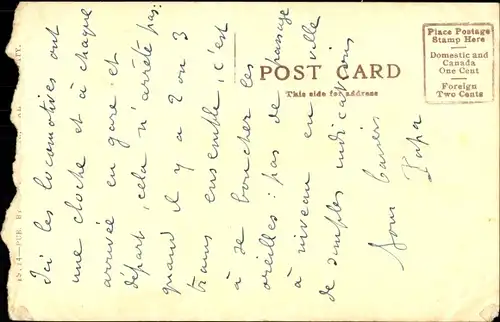 Ici les locomotives ont
une cloche et à chaque
arrivée en gare et
départ, cela n'arrête pas:
quand il y a 2 ou 3
trains ensemble, c'est
à se boucher les
oreilles: pas de passage
à niveau en ville
de simples indications
Bons baisers
Papa
POST CARD
This side for address
Place Postage
Stamp Here
Domestic and
Canada
One Cent
Foreign
Two Cents